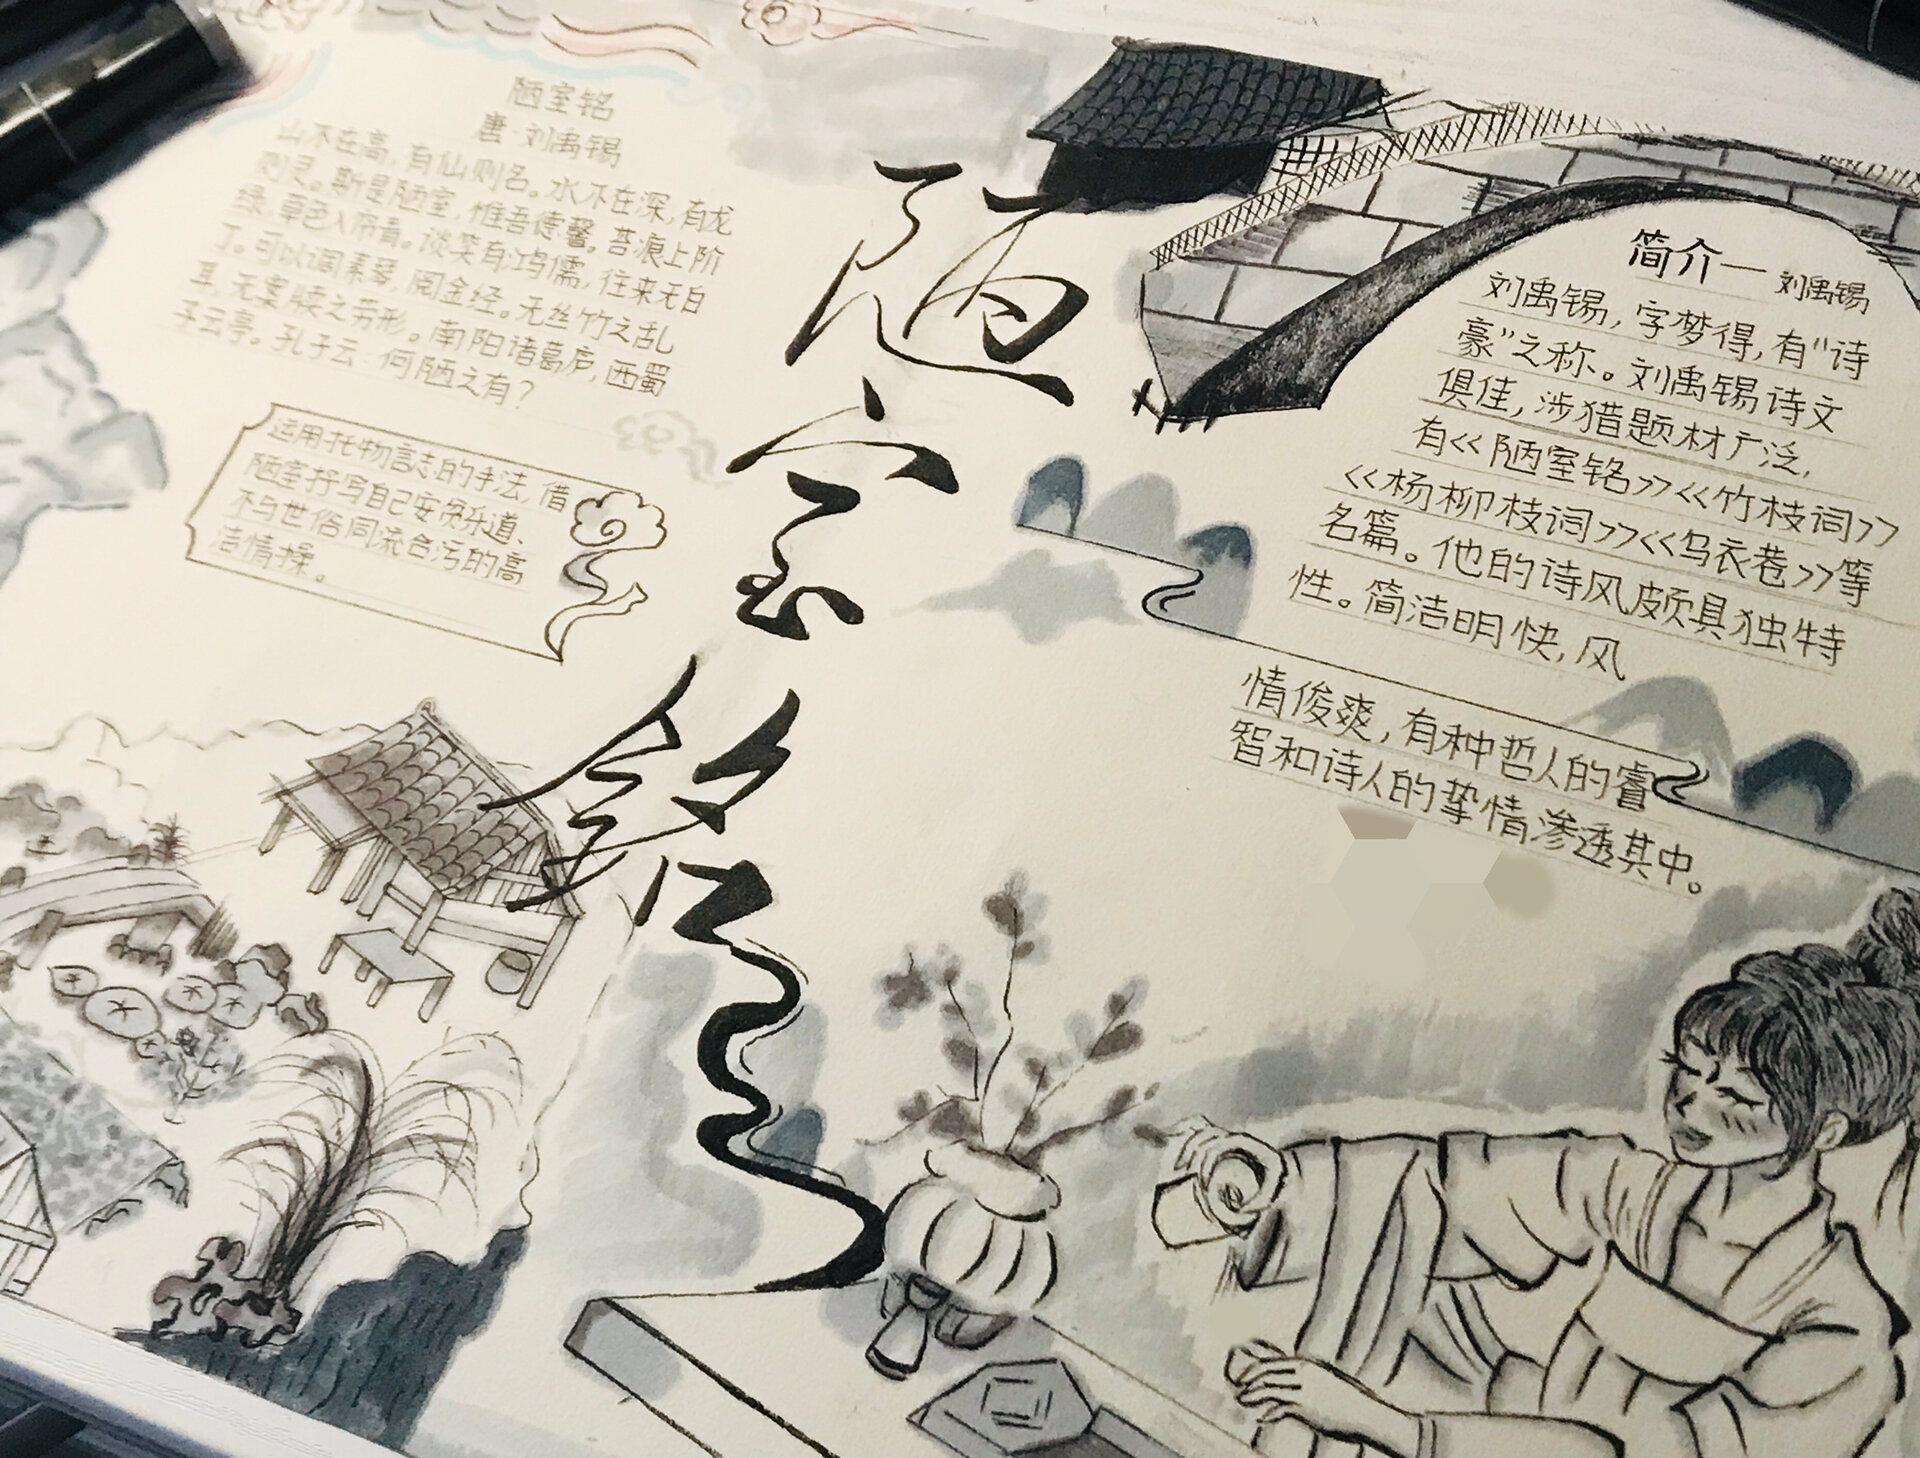 陋室铭
唐·刘禹锡
山不在高，有仙则名。水不在深，有龙
则灵。斯是陋室，惟吾德馨。苔痕上阶
绿，草色入帘青。谈笑有鸿儒，往来无白
丁。可以调素琴，阅金经。无丝竹之乱
耳，无案牍之劳形。南阳诸葛庐，西蜀
子云亭。孔子云：何陋之有？
运用托物言志的手法，借
陋室抒写自己安贫乐道、
不与世俗同流合污的高
洁情操。
陋室铭
简介—刘禹锡
刘禹锡，字梦得，有“诗
豪”之称。刘禹锡诗文
俱佳，涉猎题材广泛，
有<<陋室铭>><<竹枝词>>
<<杨柳枝词>><<乌衣巷>>等
名篇。他的诗风颇具独特
性。简洁明快，风
情俊爽，有种哲人的睿
智和诗人的挚情渗透其中。